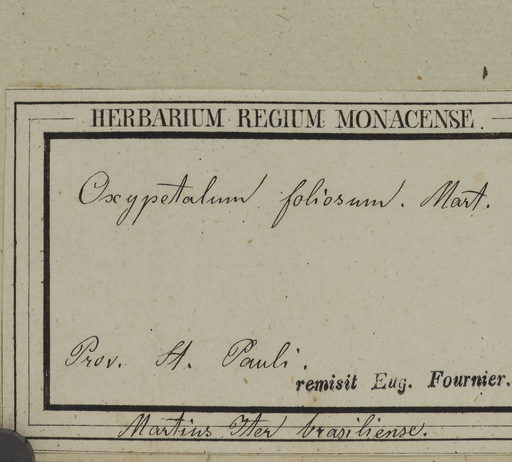 HERBARIUM REGIUM MONACENSE.
Oxypetalum foliosum. Mart.
Prov. St. Pauli.
remisit Eug. Fournier.
Martius Iter brasiliense.